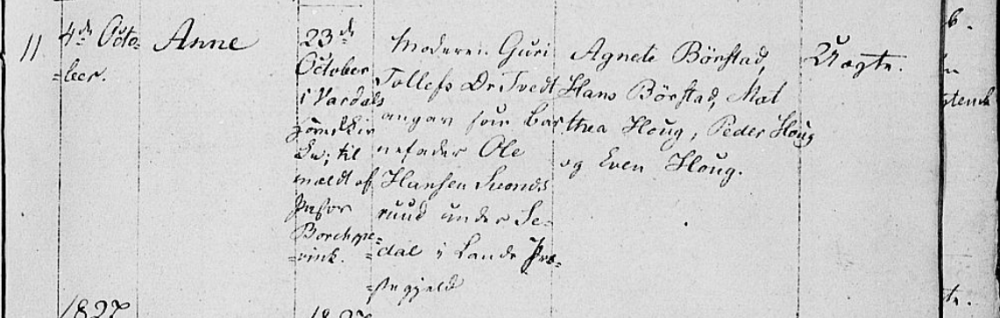 11
4de Octo-
ber.
Anne
23de
October
i Vardals
Hovedkir
ke; til
meldt af
Pastor
Borchgre-
vink.
Moderen: Guri
Tollefs Dr Tvedt
angav som Bar
nefader Ole
Hansen Svends
ruud under Se-
dal i Lands Præ-
stegjeld
Agnete Börstad,
Hans Börstad, Mat
thea Houg, Peder Houg
og Even Houg.
Uægte.
1827
1827